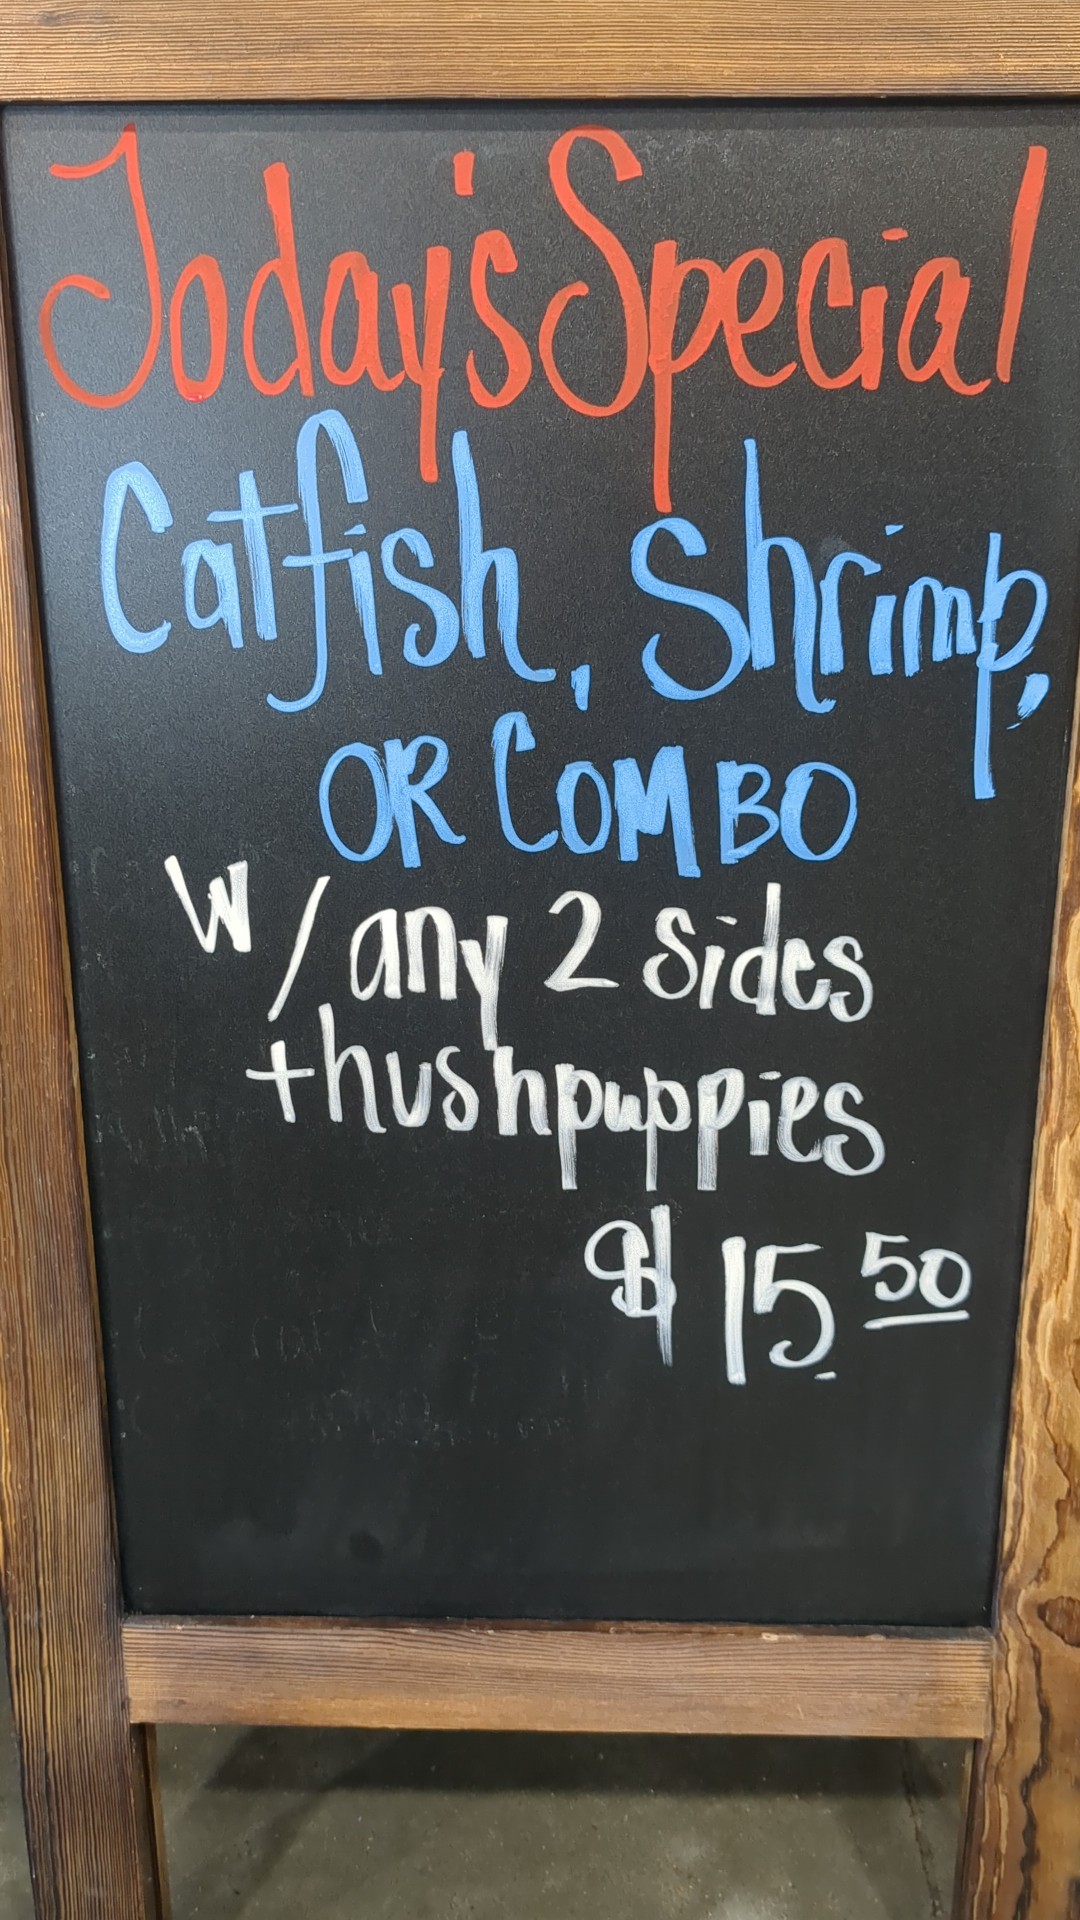 Today's Special
Catfish, Shrimp,
OR COMBO
w/any 2 sides
+hushpuppies
$15.50